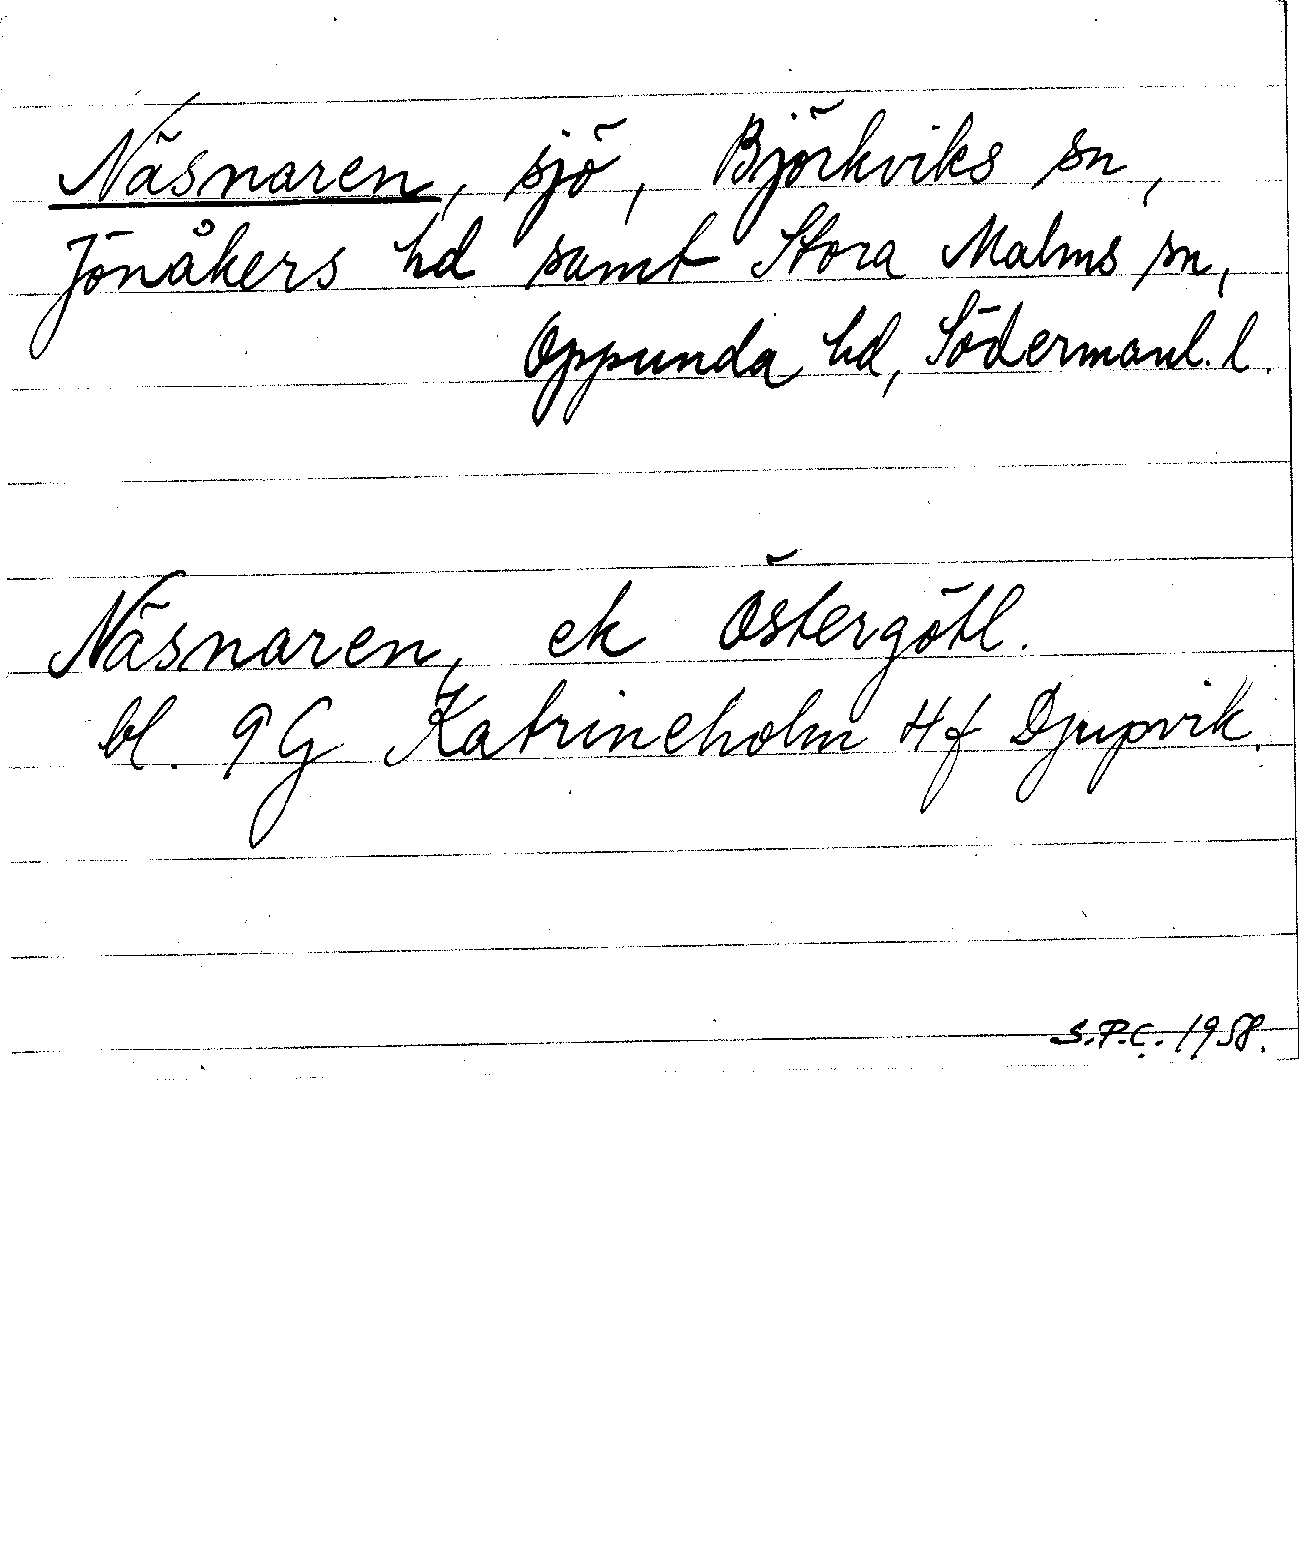 Näsnaren, sjö, Björkviks sn,
Jönåkers hd samt Stora Malms sn,
Oppunda hd, Södermanl. l.
Näsnaren, ek Östergötl.
bl. 9 G Katrineholm 4 f Djupvik.
S.P.C. 1958.